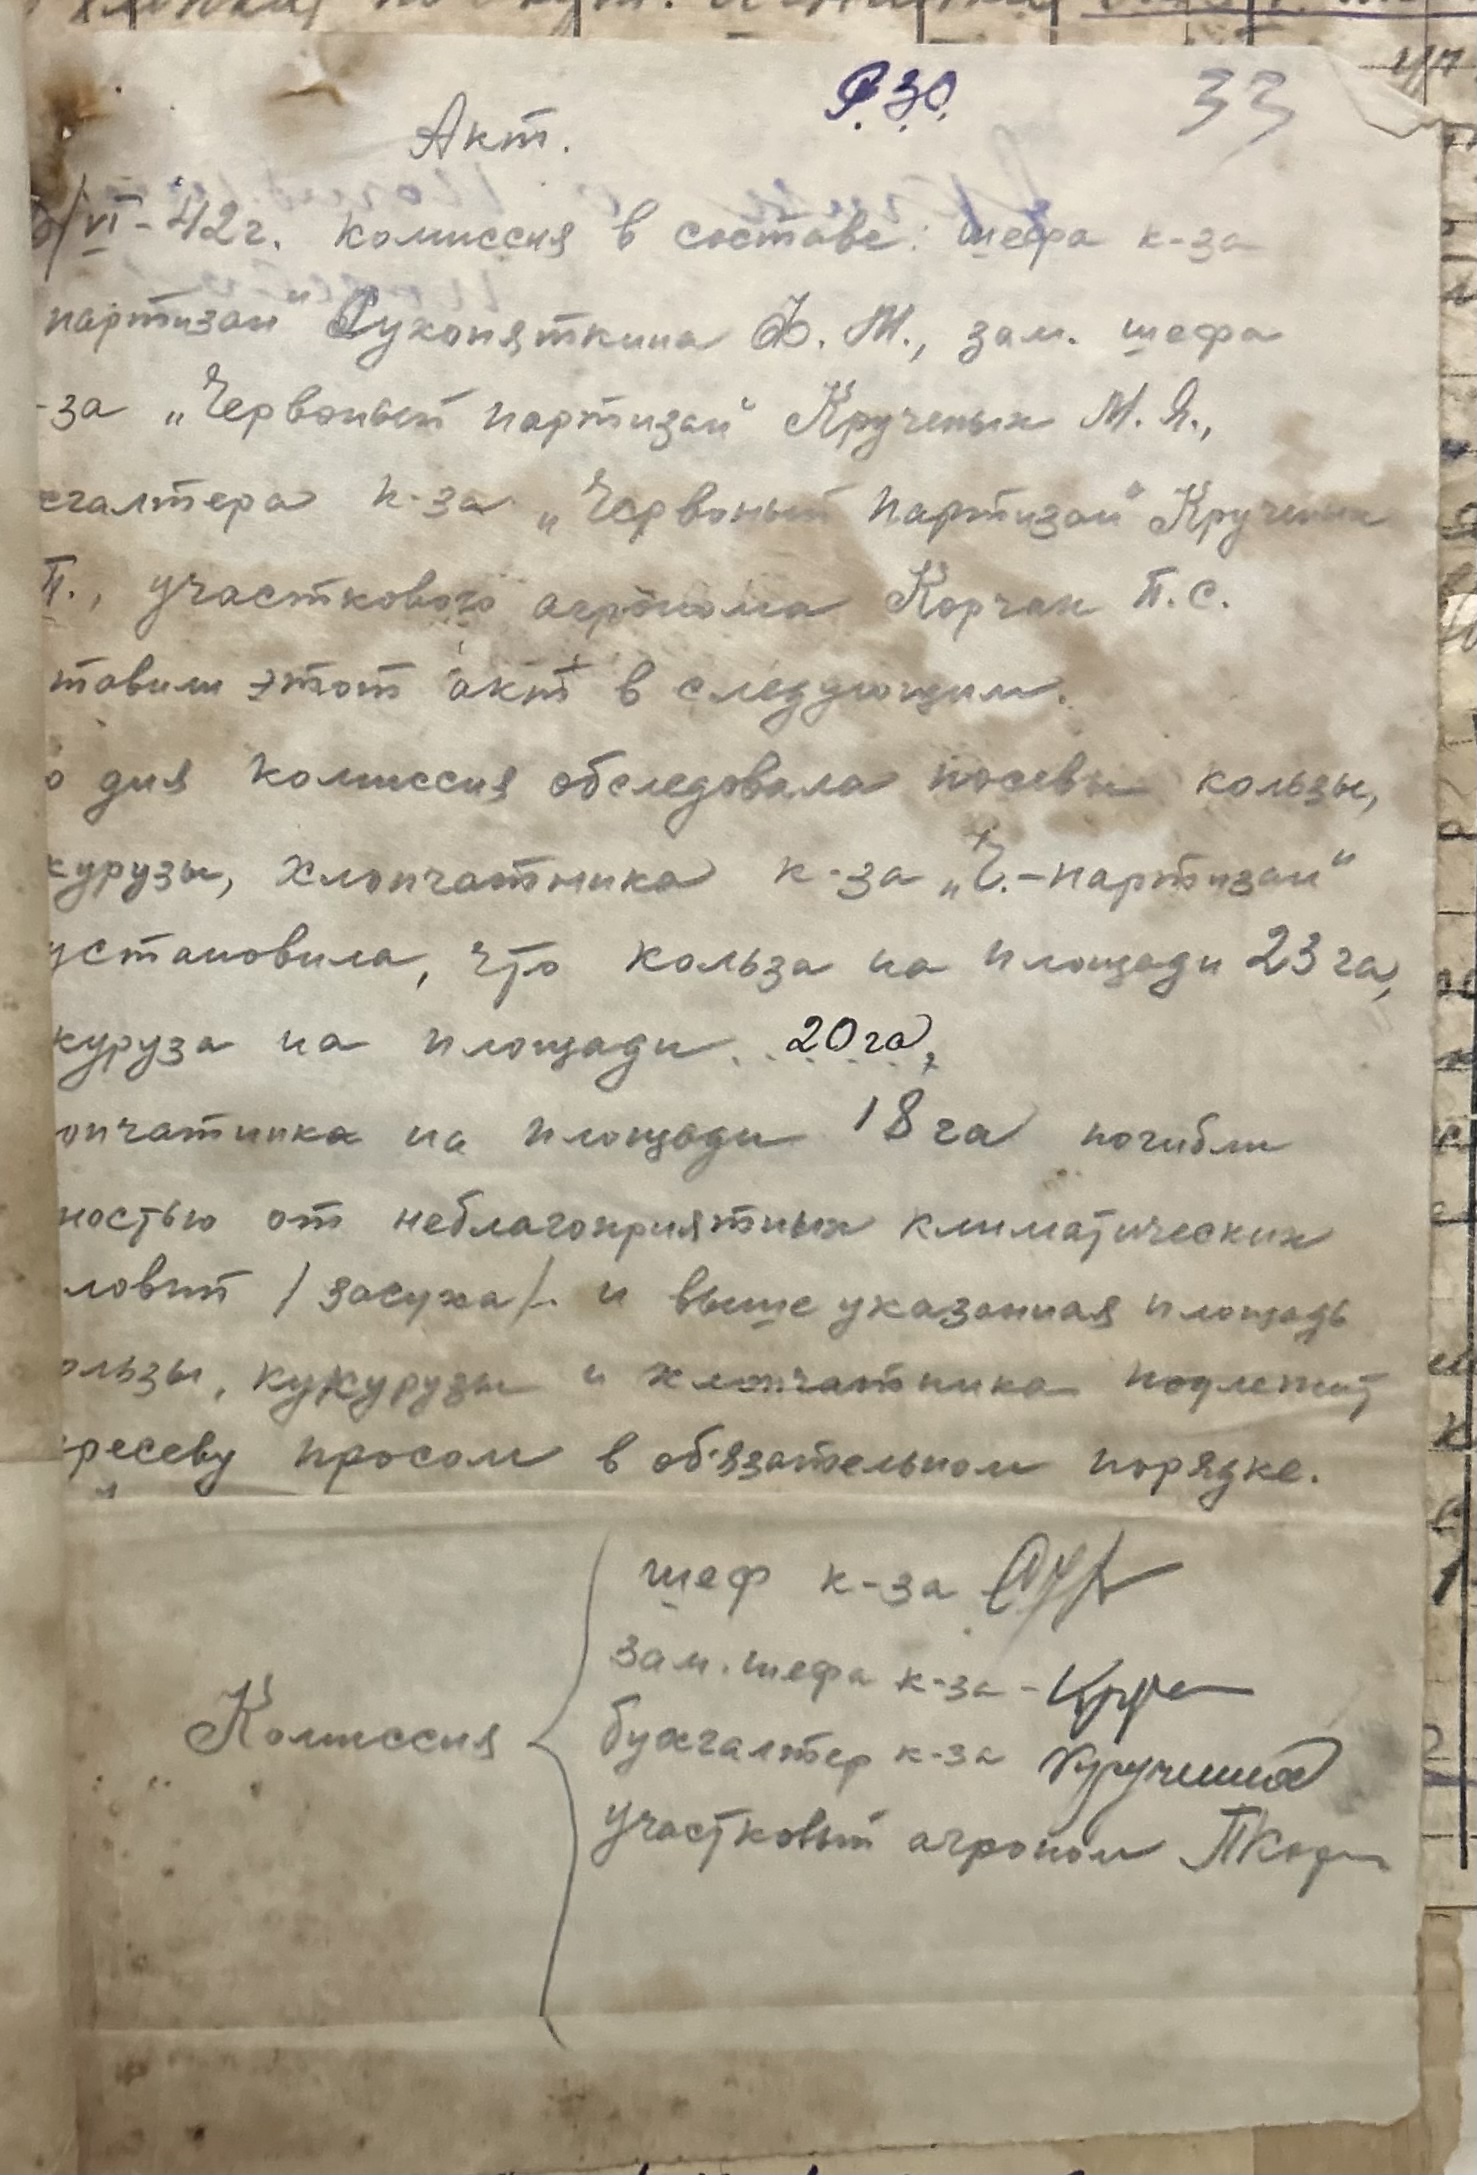 Р. 30. 33
Акт.
/VI-42г. комиссия в составе: шефа к-за
партизан" Сухопяткина Ф. М., зам. шефа
-за „Червоный партизан" Крученых М. Я.,
галтера к-за „Червоный партизан" Крученых
П., участкового агронома Корчак П. С.
тавили этот акт в следующим.
о дня комиссия обследовала посевы кользы,
курузы, хлопчатника к-за „Ч.-партизан"
установила, что кольза на площади 23 га,
куруза на площади 20 га,
опчатника на площади 18 га погибли
ностью от неблагоприятных климатических
ловий /засуха/. и выше указанная площадь
ользы, кукурузы и хлопчатника подлежит
ресеву просом в об'язательном порядке.
Комиссия
шеф к-за
зам. шефа к-за - Кру
бухгалтер к-за Крученых
участковый агроном ПКор